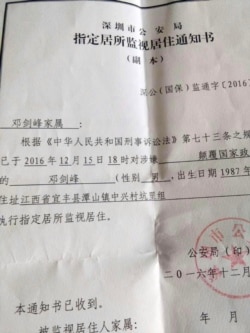 深圳市公安局
指定居所监视居住通知书
(副本)
深公(国保)监通字〔2016
邓剑峰家属:
根据《中华人民共和国刑事诉讼法》第七十三条之规
已于2016年12月15日18时对涉嫌 颠覆国家政
的 邓剑峰 (性别 男,出生日期1987年
住址江西省宜丰县潭山镇中兴村
执行指定居所监视居住。
公安局(印)
二0一六年十二月
本通知书已收到。
被监视居住人家属:
年 月